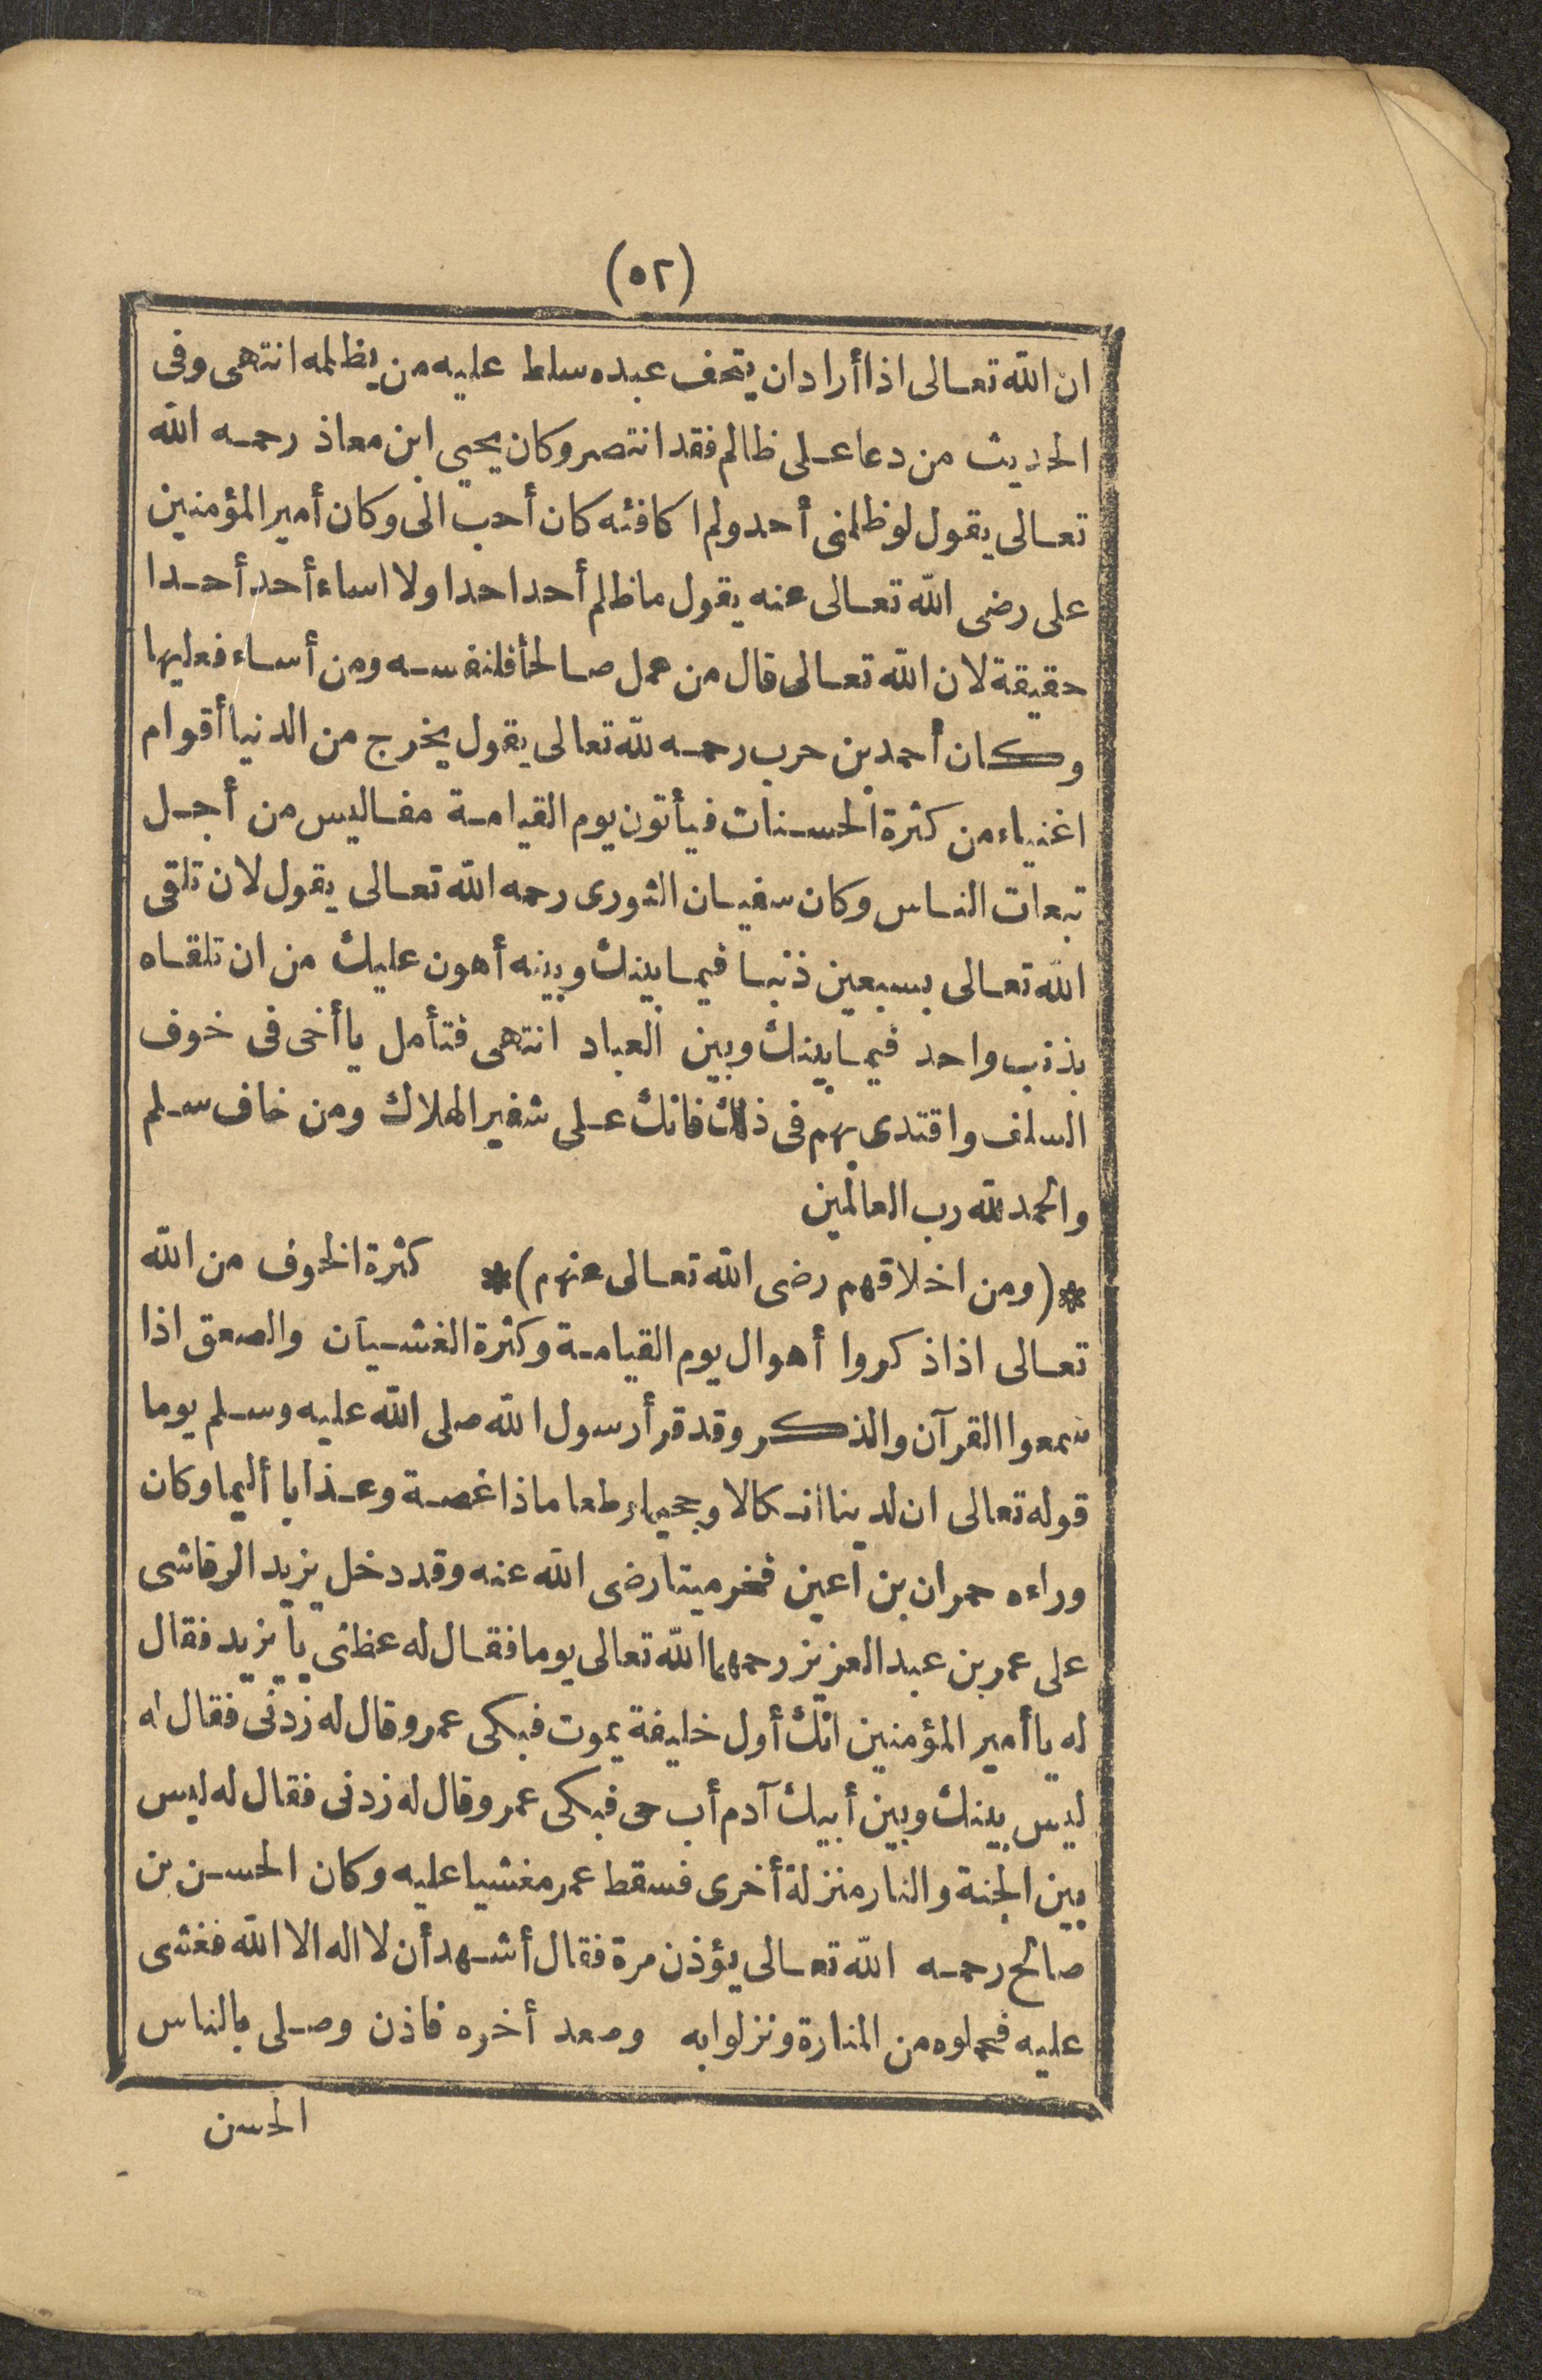 (٥٢)
ان الله تعالى اذا أراد ان يتحف عبده سلط عليه من يظلمه انتهى وفى
الحديث من دعا على ظالم فقد انتصر وكان يحيي ابن معاذ رحمه الله
تعالى يقول لو ظلمنى أحد ولم اكافئه كان أحب الى وكان أمير المؤمنين
على رضى الله تعالى عنه يقول ما ظلم أحد احدا ولا اساء أحد أحدا
حقيقة لان الله تعالى قال من عمل صالحأ فلنفسه ومن أساء فعليها
وكان أحمد بن حرب رحمه لله تعالى يقول يخرج من الدنيا أقوام
اغنياء من كثرة الحسنات فيأتون يوم القيامة مفاليس من أجل
تبعات الناس وكان سفيان الثورى رحمه الله تعالى يقول لان تلقى
الله تعالى بسبعين ذنبا فيما بينك وبينه أهون عليك من ان تلقاه
بذنب واحد فيما بينك وبين العباد انتهى فتأمل يا أخى فى خوف
السلف واقتدى بهم فى ذلك فانك على شفير الهلاك ومن خاف سلم
والحمد لله رب العالمين
*(ومن اخلاقهم رضى الله تعالى عنهم)* كثرة الخوف من الله
تعالى اذا ذكروا أهوال يوم القيامة وكثرة الغشيان والصعق اذا
سمعوا القرآن والذكر وقد قرأ رسول الله صلى الله عليه وسلم يوما
قوله تعالى ان لدينا انكالا وجحيما وطعاما ذا غصة وعذابا أليما وكان
وراءه حمران بن اعين فخر ميتا رضى الله عنه وقد دخل يزيد الرقاشى
على عمر بن عبد العزيز رحمهما الله تعالى يوما فقال له عظنى يا يزيد فقال
له يا أمير المؤمنين انك أول خليفة يموت فبكى عمر وقال له زدنى فقال له
ليس بينك وبين أبيك آدم أب حى فبكى عمر وقال له زدنى فقال له ليس
بين الجنة والنار منزلة أخرى فسقط عمر مغشيا عليه وكان الحسن بن
صالح رحمه الله تعالى يؤذن مرة فقال أشهد أن لا اله الا الله فغشى
عليه فحملوه من المنارة ونزلوا به وصعد أخره فاذن وصلى بالناس
الحسن